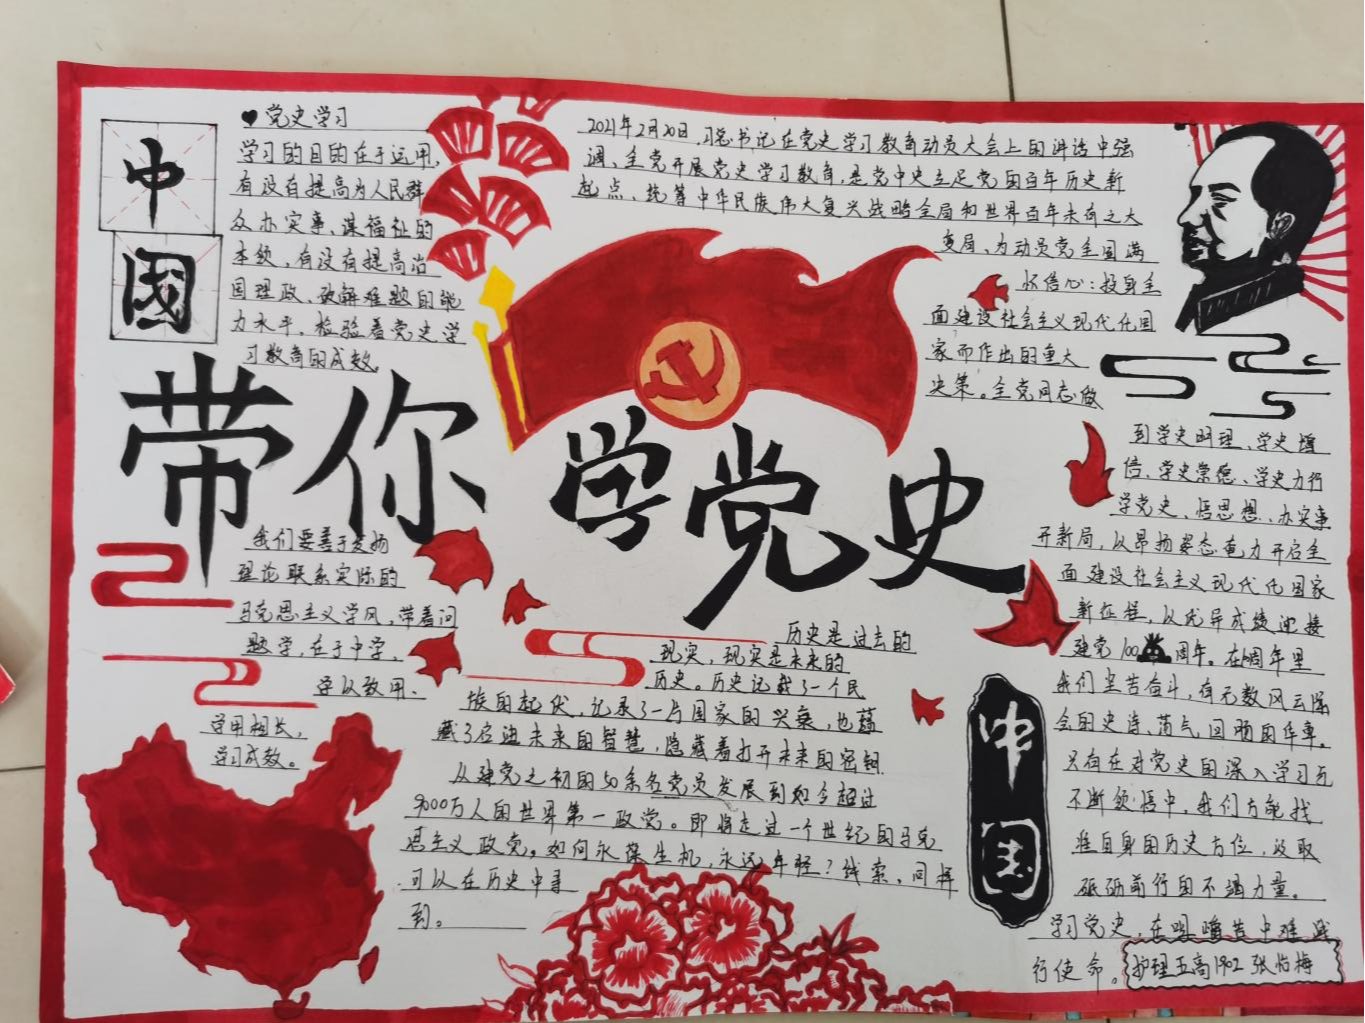 中
國
♥党史学习
学习的目的在于运用,
有没有提高为人民群
众办实事、谋福祉的
本领，有没有提高治
国理政、破解难题的能
力水平，检验着党史学
习教育的成效。
2021年2月20日，习总书记在党史学习教育动员大会上的讲话中强
调、全党开展党史学习教育，是党中央立足党的百年历史新
起点、统筹中华民族伟大复兴战略全局和世界百年未有之大
变局、为动员党全国满
怀信心：投身全
面建设社会主义现代化国
家而作出的重大
决策。全党同志做
到学史明理、学史增
信、学史崇德、学史力行
学党史、悟思想、办实事
开新局，以昂扬姿态奋力开启全
面建设社会主义现代化国家
新征程，以优异成绩迎接
建党100周年。在周年里
我们坚苦奋斗，有无数风云际
会的史诗、荡气回肠的华章。
只有在对党史的深入学习与
不断领悟中，我们方能找
准自身的历史方位，汲取
砥砺前行的不竭力量。
学习党史，在中
行使命。
带你学党史
我们要善于发扬
理论联系实际的
马克思主义学风，带着问
题学，在于中学，
学以致用、
学用相长，
学习成效。
历史是过去的
现实，现实是未来的
历史。历史记载了一个民
族的起伏，记录了一与国家的兴衰，也蕴
藏了启迪未来的智慧，隐藏着打开未来的密钥.
从建党之初的50余名党员发展到如今超过
9000万人的世界第一政党。即将走过一个世纪的马克
思主义政党，如何永葆生机，永远年轻？线索，同样
可以在历史中寻
到。
中
国
护理五高1902 张怡梅